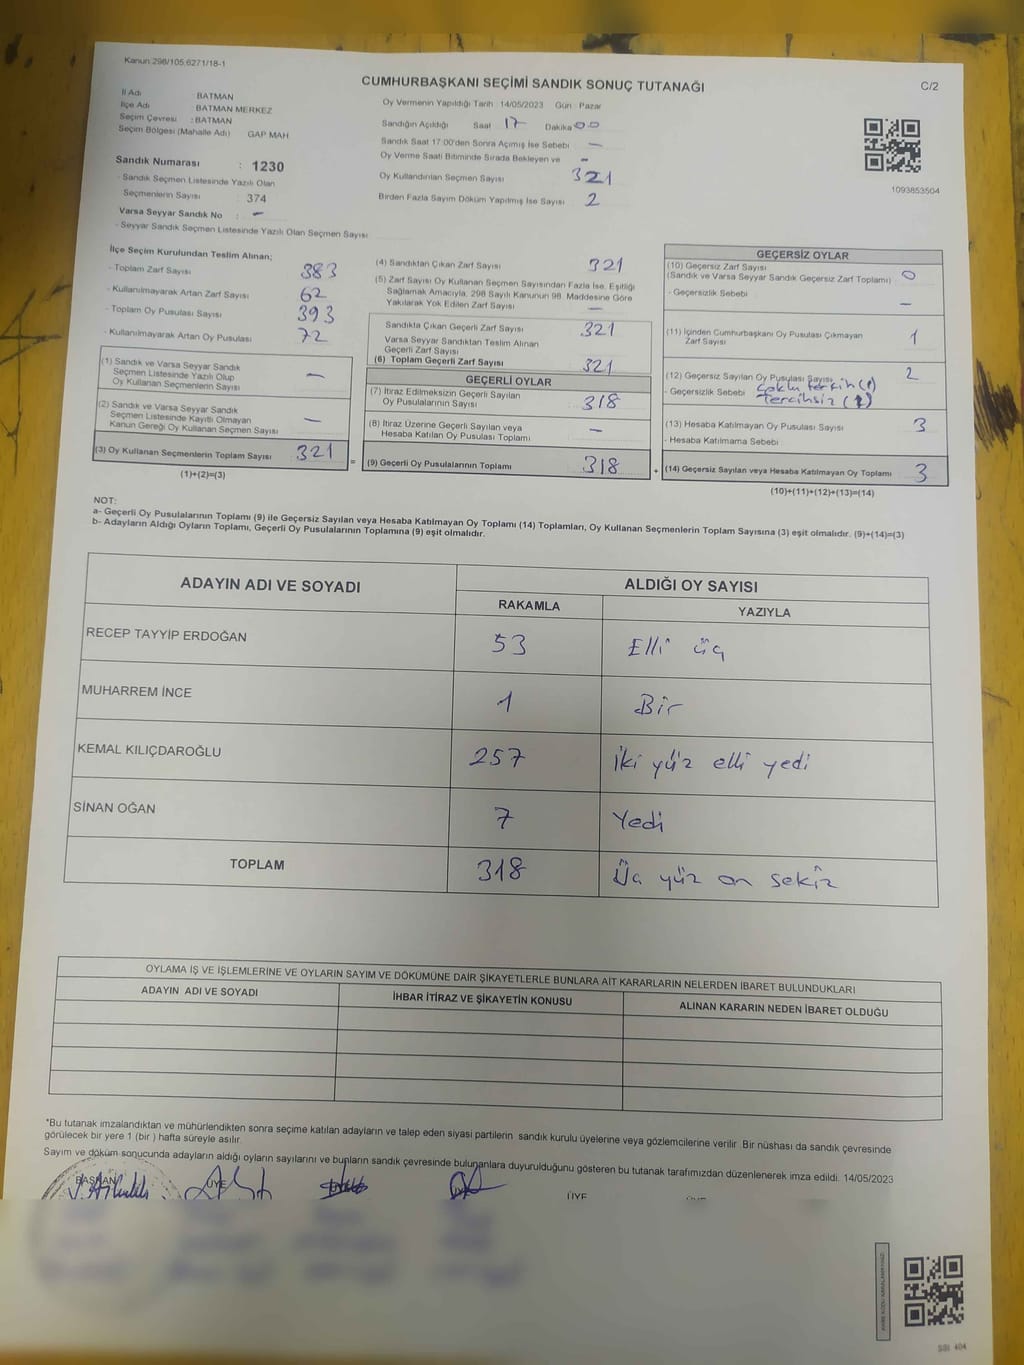 Kanun:298/105;6271/18-1
CUMHURBAŞKANI SEÇİMİ SANDIK SONUÇ TUTANAĞI
C/2
İl Adı : BATMAN
İlçe Adı : BATMAN MERKEZ
Seçim Çevresi : BATMAN
Seçim Bölgesi (Mahalle Adı) GAP MAH
Sandık Numarası : 1230
- Sandık Seçmen Listesinde Yazılı Olan
Seçmenlerin Sayısı : 374
Varsa Seyyar Sandık No : -
- Seyyar Sandık Seçmen Listesinde Yazılı Olan Seçmen Sayısı
Oy Vermenin Yapıldığı Tarih 14/05/2023 Gün : Pazar
Sandığın Açıldığı Saat 17 Dakika 00
Sandık Saat 17:00'den Sonra Açımış İse Sebebi -
Oy Verme Saati Bitiminde Sırada Bekleyen ve -
Oy Kullandırılan Seçmen Sayısı 321
Birden Fazla Sayım Döküm Yapılmış İse Sayısı 2
1093853504
İlçe Seçim Kurulundan Teslim Alınan;
- Toplam Zarf Sayısı 383
- Kullanılmayarak Artan Zarf Sayısı 62
- Toplam Oy Pusulası Sayısı 393
- Kullanılmayarak Artan Oy Pusulası 72
(1) Sandık ve Varsa Seyyar Sandık
Seçmen Listesinde Yazılı Olup
Oy Kullanan Seçmenlerin Sayısı -
(2) Sandık ve Varsa Seyyar Sandık
Seçmen Listesinde Kayıtlı Olmayan
Kanun Gereği Oy Kullanan Seçmen Sayısı -
(3) Oy Kullanan Seçmenlerin Toplam Sayısı 321
(1)+(2)=(3)
(4) Sandıktan Çıkan Zarf Sayısı 321
(5) Zarf Sayısı Oy Kullanan Seçmen Sayısından Fazla İse, Eşitliği
Sağlamak Amacıyla, 298 Sayılı Kanunun 98. Maddesine Göre
Yakılarak Yok Edilen Zarf Sayısı -
Sandıkta Çıkan Geçerli Zarf Sayısı 321
Varsa Seyyar Sandıktan Teslim Alınan
Geçerli Zarf Sayısı
(6) Toplam Geçerli Zarf Sayısı 321
GEÇERLİ OYLAR
(7) İtiraz Edilmeksizin Geçerli Sayılan
Oy Pusulalarının Sayısı 318
(8) İtiraz Üzerine Geçerli Sayılan veya
Hesaba Katılan Oy Pusulası Toplamı -
= (9) Geçerli Oy Pusulalarının Toplamı 318 +
GEÇERSİZ OYLAR
(10) Geçersiz Zarf Sayısı
(Sandık ve Varsa Seyyar Sandık Geçersiz Zarf Toplamı) 0
- Geçersizlik Sebebi -
(11) İçinden Cumhurbaşkanı Oy Pusulası Çıkmayan
Zarf Sayısı 1
(12) Geçersiz Sayılan Oy Pusulası Sayısı 2
- Geçersizlik Sebebi Çoklu tercih (1)
Tercihsiz (1)
(13) Hesaba Katılmayan Oy Pusulası Sayısı 3
- Hesaba Katılmama Sebebi
(14) Geçersiz Sayılan veya Hesaba Katılmayan Oy Toplamı 3
(10)+(11)+(12)+(13)=(14)
NOT:
a- Geçerli Oy Pusulalarının Toplamı (9) ile Geçersiz Sayılan veya Hesaba Katılmayan Oy Toplamı (14) Toplamları, Oy Kullanan Seçmenlerin Toplam Sayısına (3) eşit olmalıdır. (9)+(14)=(3)
b- Adayların Aldığı Oyların Toplamı, Geçerli Oy Pusulalarının Toplamına (9) eşit olmalıdır.
ADAYIN ADI VE SOYADI
ALDIĞI OY SAYISI
RAKAMLA YAZIYLA
RECEP TAYYİP ERDOĞAN 53 Elli üç
MUHARREM İNCE 1 Bir
KEMAL KILIÇDAROĞLU 257 iki yüz elli yedi
SİNAN OĞAN 7 Yedi
TOPLAM 318 Üç yüz on sekiz
OYLAMA İŞ VE İŞLEMLERİNE VE OYLARIN SAYIM VE DÖKÜMÜNE DAİR ŞİKAYETLERLE BUNLARA AİT KARARLARIN NELERDEN İBARET BULUNDUKLARI
ADAYIN ADI VE SOYADI İHBAR İTİRAZ VE ŞİKAYETİN KONUSU ALINAN KARARIN NEDEN İBARET OLDUĞU
*Bu tutanak imzalandıktan ve mühürlendikten sonra seçime katılan adayların ve talep eden siyasi partilerin sandık kurulu üyelerine veya gözlemcilerine verilir. Bir nüshası da sandık çevresinde
görülecek bir yere 1 (bir) hafta süreyle asılır.
Sayım ve döküm sonucunda adayların aldığı oyların sayılarını ve bunların sandık çevresinde bulunanlara duyurulduğunu gösteren bu tutanak tarafımızdan düzenlenerek imza edildi. 14/05/2023
BAŞKAN ÜYE ÜYE
SSI 404